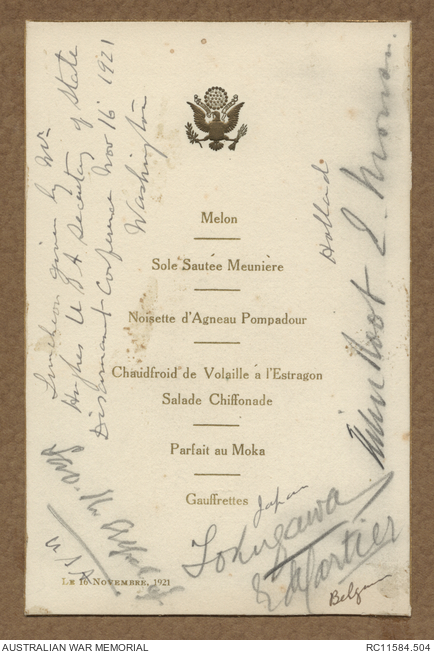 Luncheon given by Mr
Hughes U.S.A Secretary of State
Disarmament Conference Nov 16 1921
Washington
Melon
Sole Sautée Meunière
Noisette d'Agneau Pompadour
Chaudfroid de Volaille à l'Estragon
Salade Chiffonade
Parfait au Moka
Gauffrettes
Le 16 Novembre, 1921
Holland
Elihu Root
Japan
Tokugawa
E de Cartier
Belgium
USA
AUSTRALIAN WAR MEMORIAL
RC11584.504